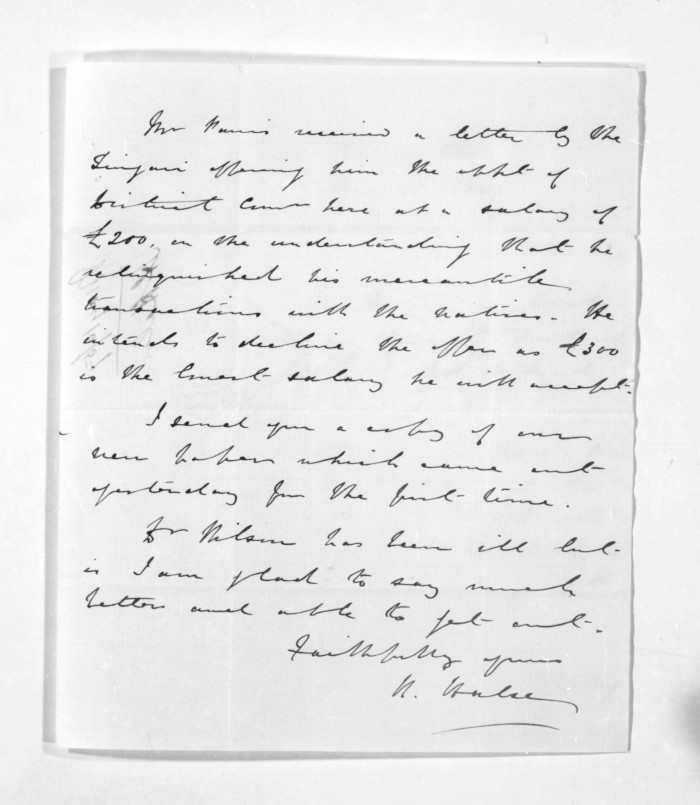 Mr Parris received a letter by the
Tinjari offering him the appt of
District Comr here at a salary of
£200, on the understanding that he
relinquished his mercantile
transactions with the natives - He
intends to decline the offer as £300
is the lowest salary he will accept -
I send you a copy of our
new paper which came out
yesterday for the first time.
Dr Wilson has been ill but
is I am glad to say much
better and able to get out -
Faithfully yours
H. Halse